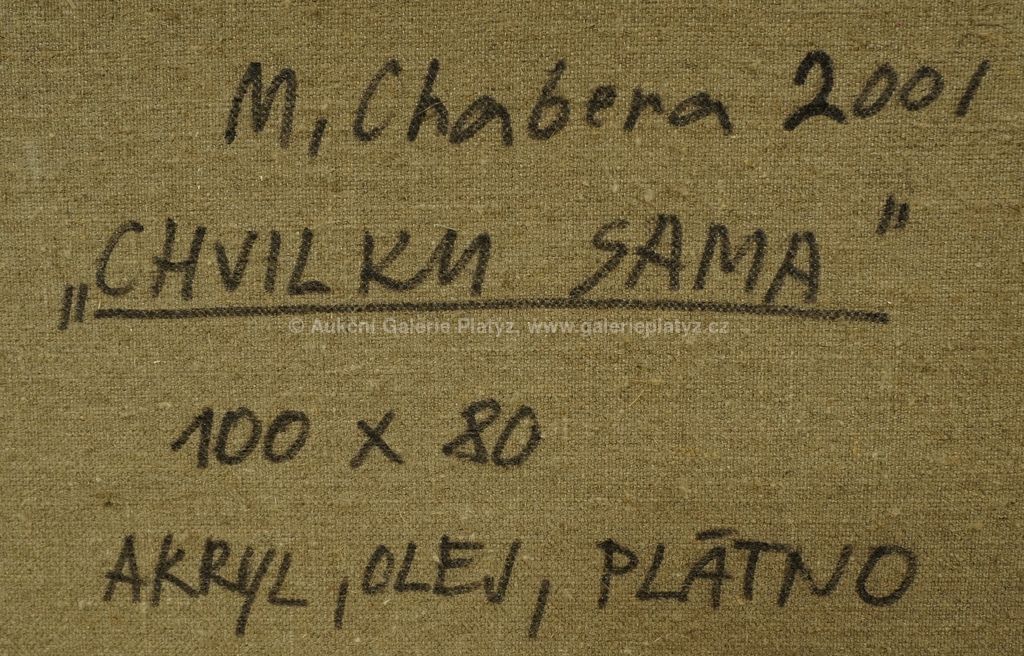 M, Chabera 2001
„CHVILKU SAMA"
© Aukční Galerie Platýz, www.galerieplatyz.cz
100 x 80
AKRYL, OLEJ, PLÁTNO